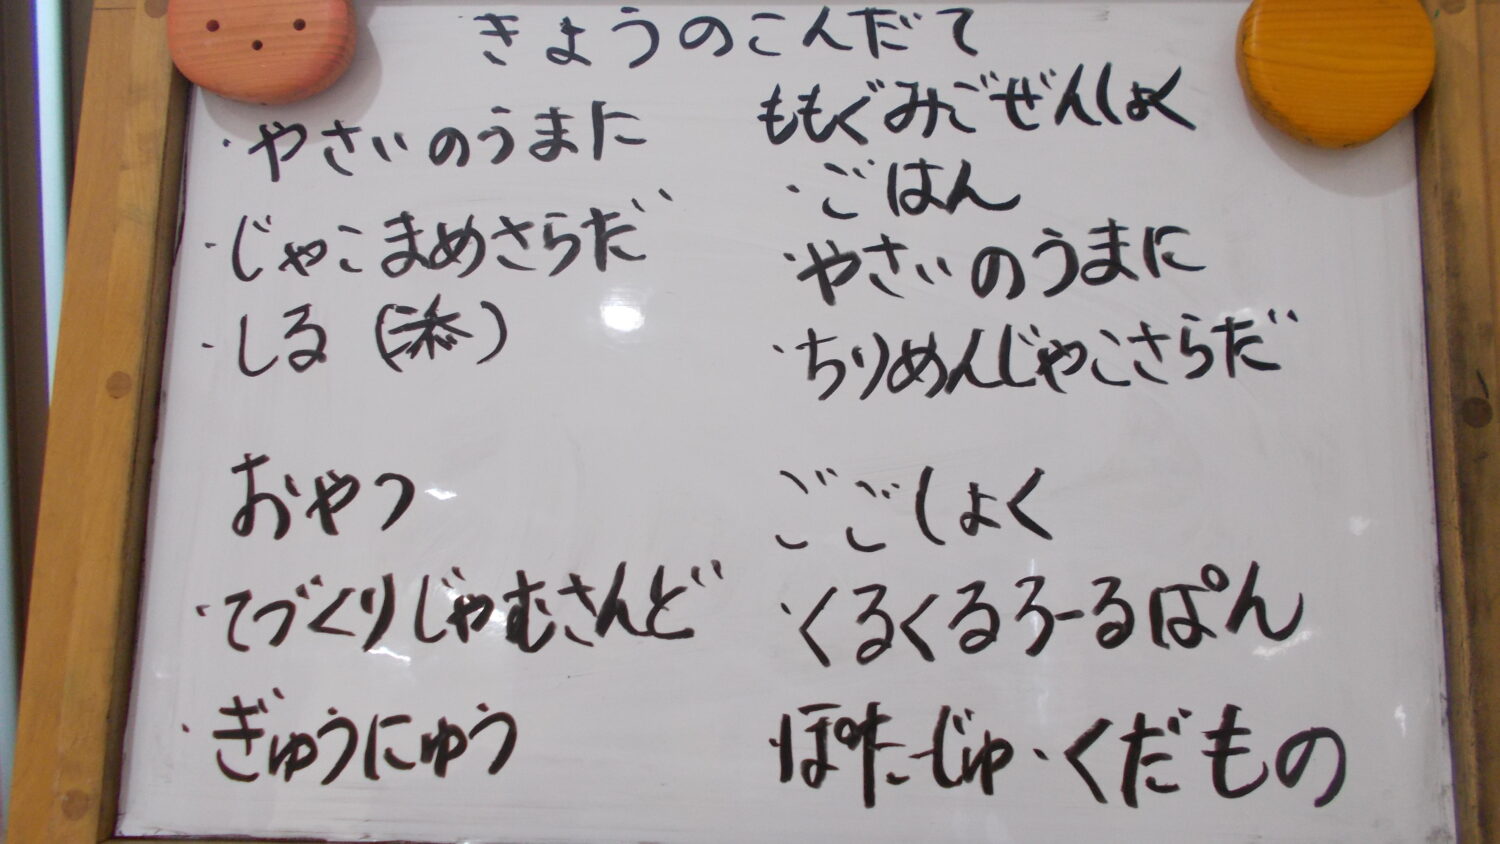 きょうのこんだて
・やさいのうまに
・じゃこまめさらだ
・しる（添）
おやつ
・てづくりじゃむさんど
・ぎゅうにゅう
ももぐみごぜんしょく
・ごはん
・やさいのうまに
・ちりめんじゃこさらだ
ごごしょく
・くるくるろーるぱん
・ぽたーじゅ・くだもの